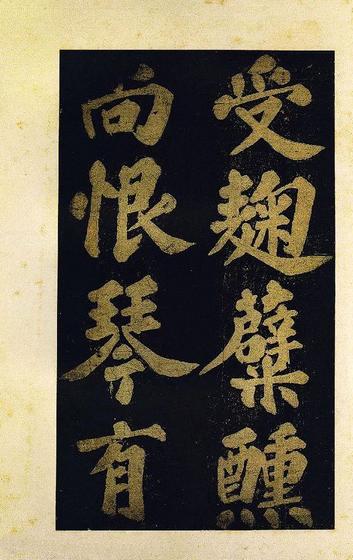 受麴糵醺
向恨琴有